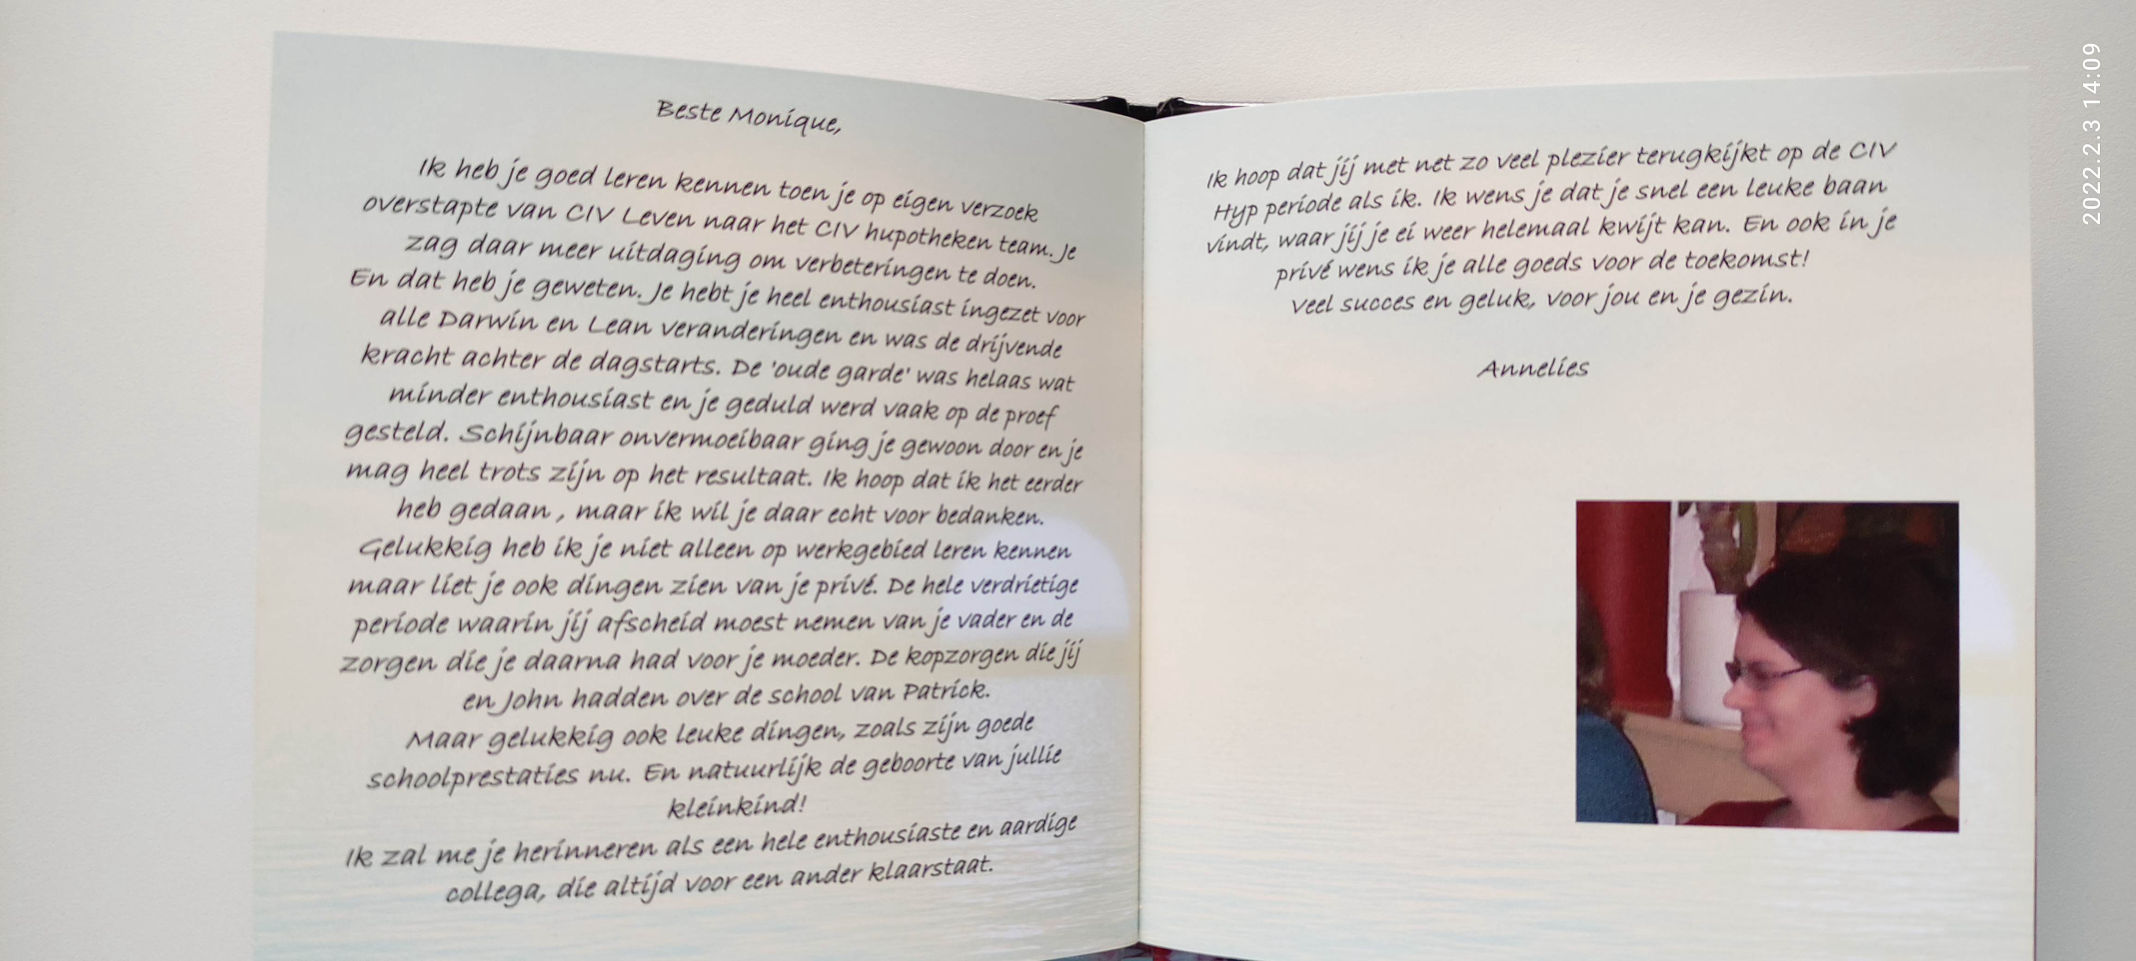 Beste Monique,
Ik heb je goed leren kennen toen je op eigen verzoek
overstapte van CIV Leven naar het CIV hupotheken team. Je
zag daar meer uitdaging om verbeteringen te doen.
En dat heb je geweten. Je hebt je heel enthousiast ingezet voor
alle Darwin en Lean veranderingen en was de drijvende
kracht achter de dagstarts. De 'oude garde' was helaas wat
minder enthousiast en je geduld werd vaak op de proef
gesteld. Schijnbaar onvermoeibaar ging je gewoon door en je
mag heel trots zijn op het resultaat. Ik hoop dat ik het eerder
heb gedaan , maar ik wil je daar echt voor bedanken.
Gelukkig heb ik je niet alleen op werkgebied leren kennen
maar liet je ook dingen zien van je privé. De hele verdrietige
periode waarin jij afscheid moest nemen van je vader en de
zorgen die je daarna had voor je moeder. De kopzorgen die jij
en John hadden over de school van Patrick.
Maar gelukkig ook leuke dingen, zoals zijn goede
schoolprestaties nu. En natuurlijk de geboorte van jullie
kleinkind!
Ik zal me je herinneren als een hele enthousiaste en aardige
collega, die altijd voor een ander klaarstaat.
Ik hoop dat jij met net zo veel plezier terugkijkt op de CIV
Hyp periode als ik. Ik wens je dat je snel een leuke baan
vindt, waar jij je ei weer helemaal kwijt kan. En ook in je
privé wens ik je alle goeds voor de toekomst!
Veel succes en geluk, voor jou en je gezin.
Annelies
2022.2.3 14:09